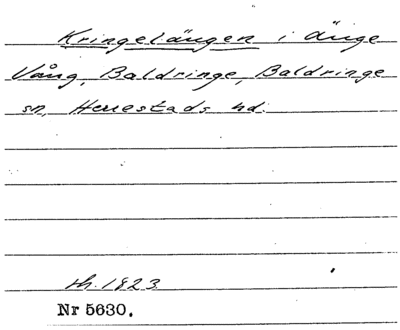 Kringelängen i Änge
Vång, Baldringe, Baldringe
sn, Herrestads hd.
sk. 1823.
Nr 5630.